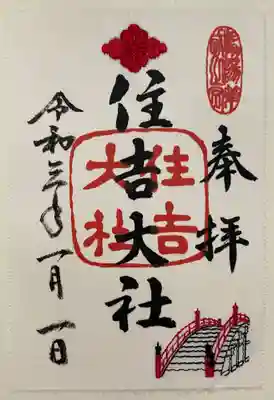 奉拝
住吉大社
住吉大社
令和三年一月一日